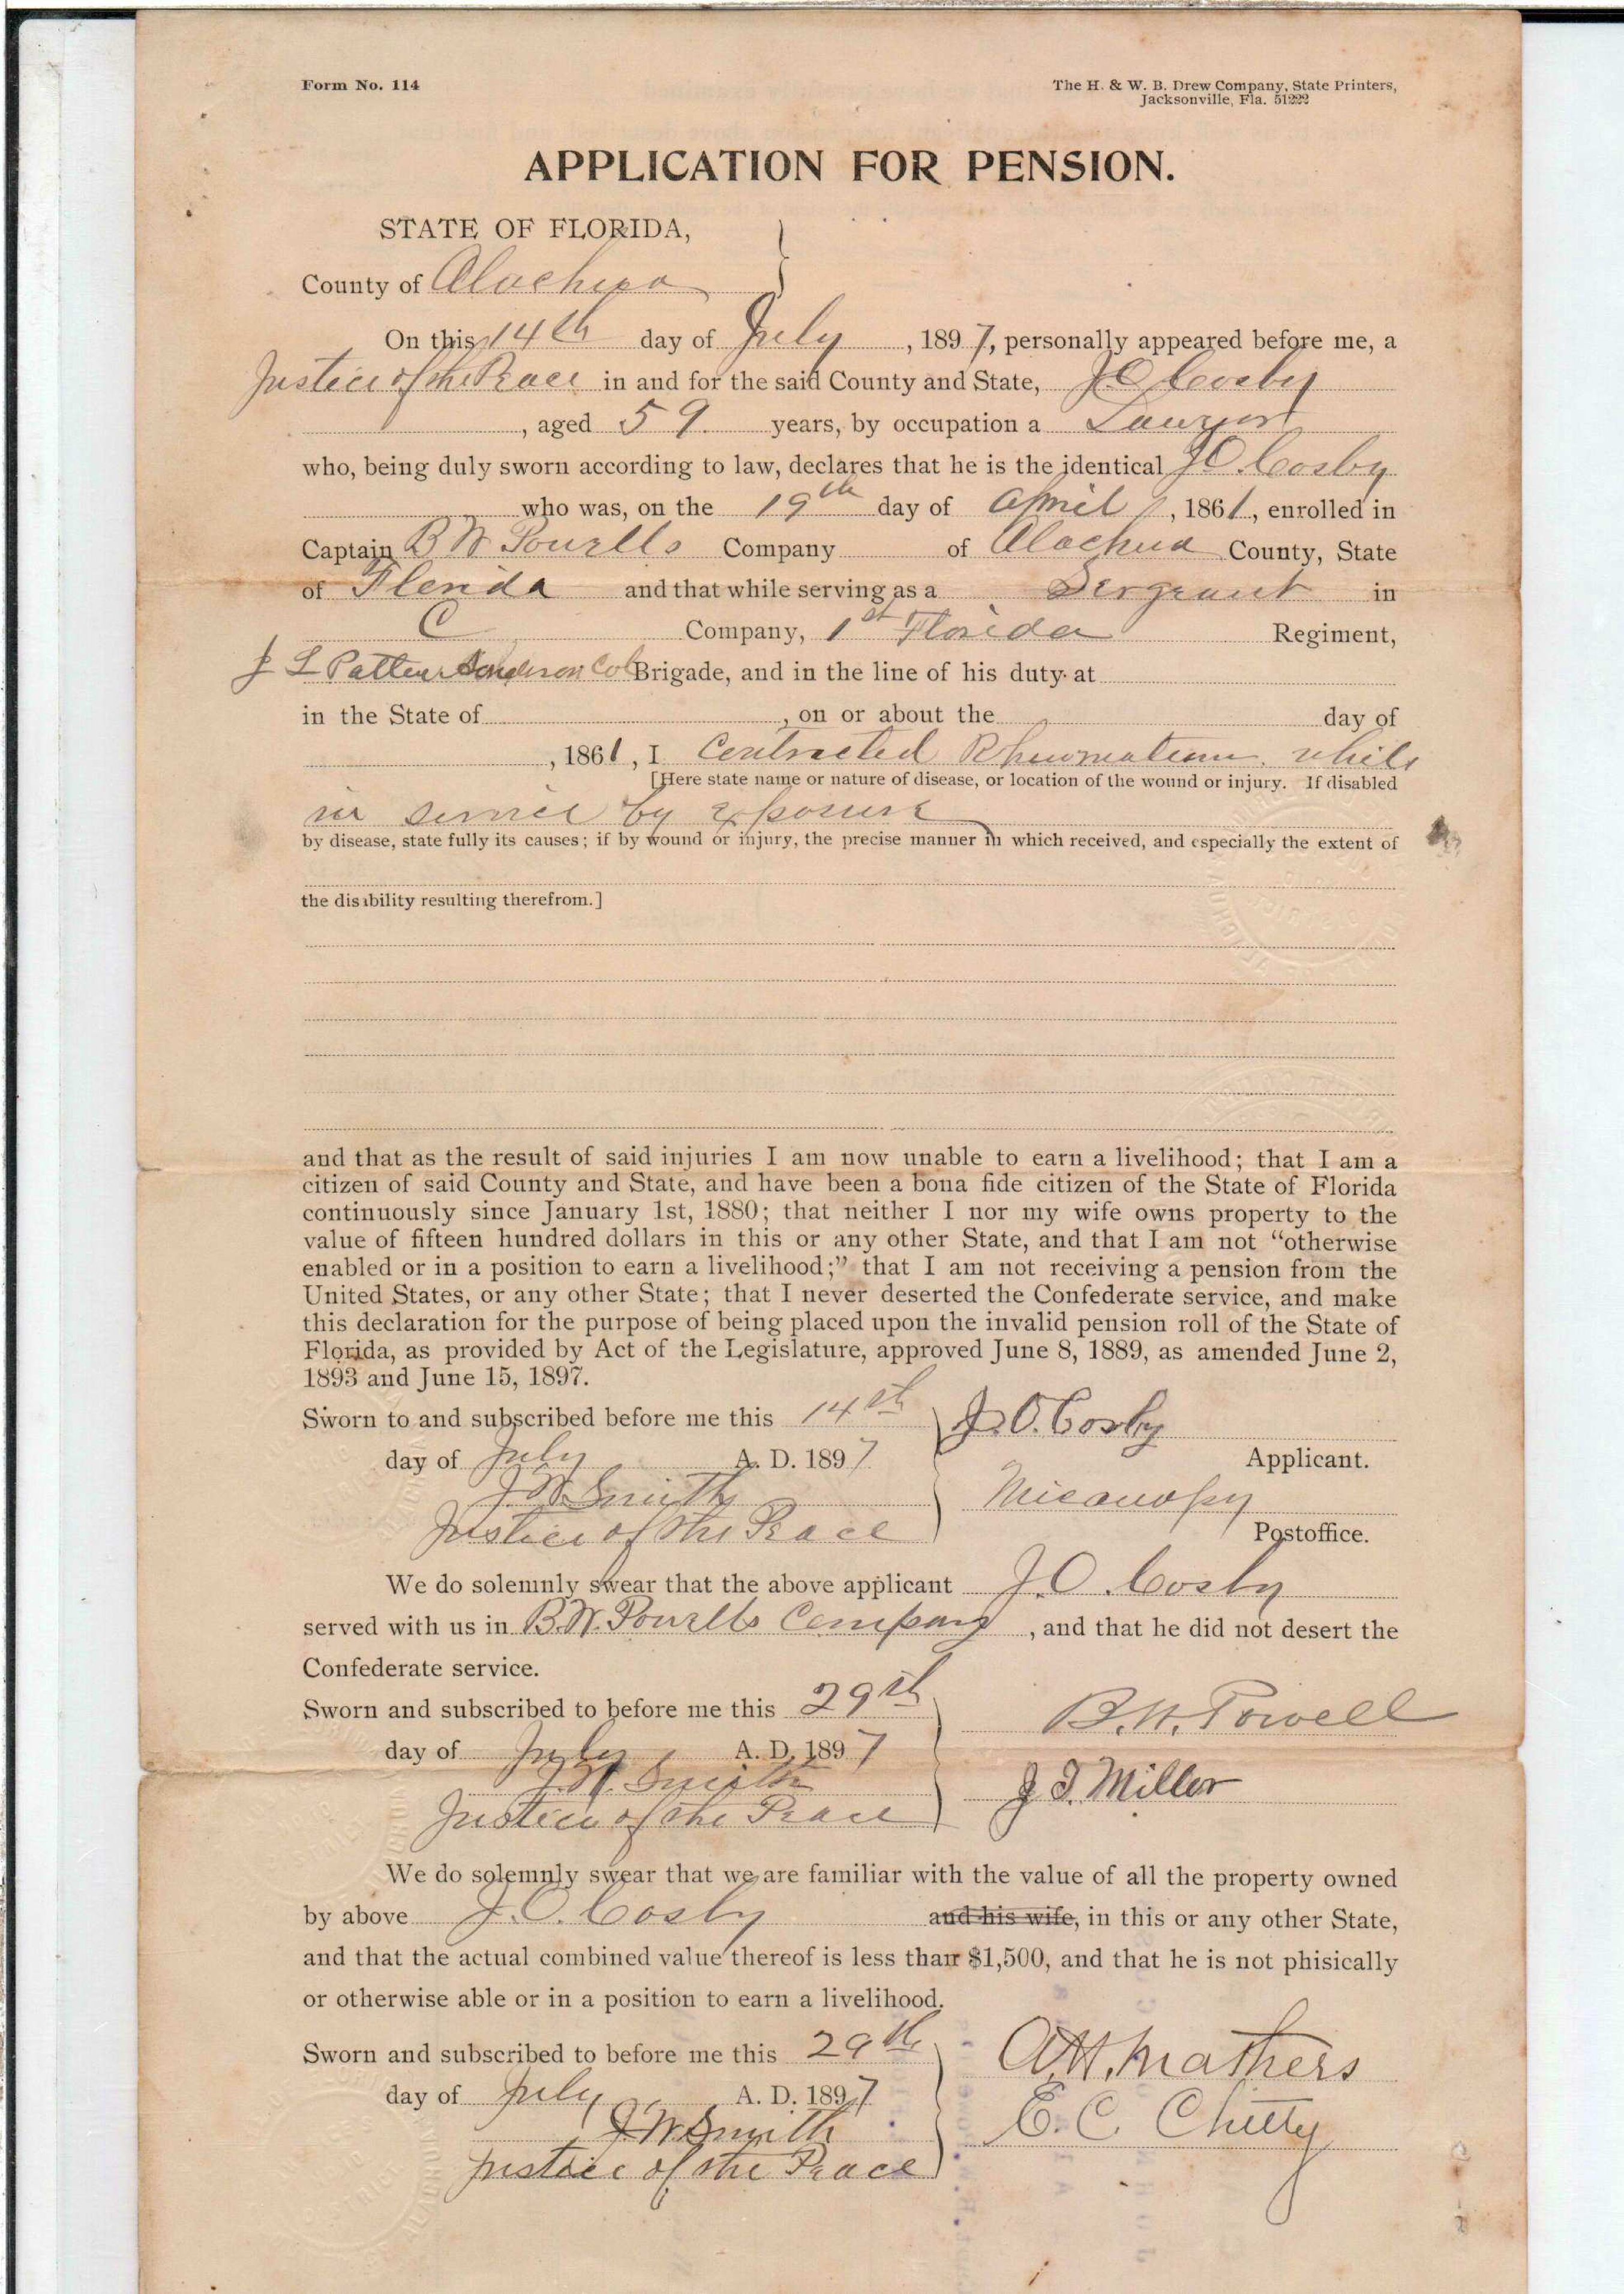 Form No. 114
The H. & W. B. Drew Company, State Printers,
Jacksonville, Fla. 51222
APPLICATION FOR PENSION.
STATE OF FLORIDA,
County of Alachua
On this 14th day of July, 1897, personally appeared before me, a
Justice of the Peace in and for the said County and State, J.O. Cosby
, aged 59 years, by occupation a Lawyer
who, being duly sworn according to law, declares that he is the identical J.O. Cosby
who was, on the 19th day of April, 1861, enrolled in
Captain B W Powells Company of Alachua County, State
of Florida and that while serving as a Sergeant in
C Company, 1st Florida Regiment,
Patten Anderson Col Brigade, and in the line of his duty at
in the State of , on or about the day of
, 1861, I Contracted Rheumatism while
[Here state name or nature of disease, or location of the wound or injury. If disabled
in service by exposure
by disease, state fully its causes; if by wound or injury, the precise manner in which received, and especially the extent of
the disability resulting therefrom.]
and that as the result of said injuries I am now unable to earn a livelihood; that I am a
citizen of said County and State, and have been a bona fide citizen of the State of Florida
continuously since January 1st, 1880; that neither I nor my wife owns property to the
value of fifteen hundred dollars in this or any other State, and that I am not “otherwise
enabled or in a position to earn a livelihood;” that I am not receiving a pension from the
United States, or any other State; that I never deserted the Confederate service, and make
this declaration for the purpose of being placed upon the invalid pension roll of the State of
Florida, as provided by Act of the Legislature, approved June 8, 1889, as amended June 2,
1893 and June 15, 1897.
Sworn to and subscribed before me this 14th J.O. Cosby
day of July A. D. 1897 Applicant.
J.W. Smith Micanopy
Justice of the Peace Postoffice.
We do solemnly swear that the above applicant J.O. Cosby
served with us in B.W. Powells Company, and that he did not desert the
Confederate service.
Sworn and subscribed to before me this 29th B.W. Powell
day of July A. D. 1897
J.W. Smith J.I. Miller
Justice of the Peace
We do solemnly swear that we are familiar with the value of all the property owned
by above J.O. Cosby and his wife, in this or any other State,
and that the actual combined value thereof is less than $1,500, and that he is not phisically
or otherwise able or in a position to earn a livelihood.
Sworn and subscribed to before me this 29th A.H. Mathers
day of July A. D. 1897 E. C. Chitty
J W Smith
Justice of the Peace